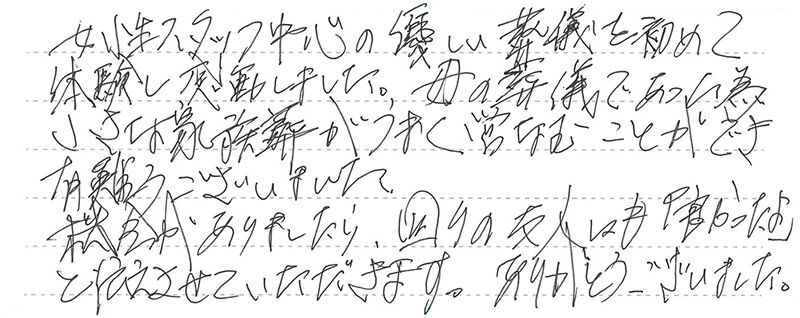 女性スタッフ中心の優しい葬儀を初めて
体験し感動しました。母の葬儀であった為
小さな家族葬がうまく営なむことができ
有難うございました。
機会がありましたら、回りの友人にも「良かったよ」
と伝えさせていただきます。ありがとうございました。